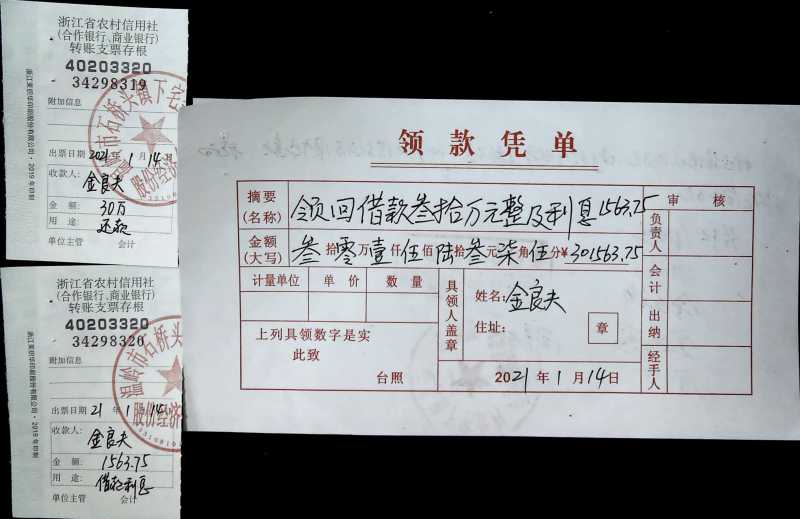 浙江省农村信用社
(合作银行、商业银行)
转账支票存根
40203320
34298319
附加信息
出票日期 2021年1月14日
收款人:
金良夫
金 额: 30万
用 途: 还款
单位主管 会计
浙江省农村信用社
(合作银行、商业银行)
转账支票存根
40203320
34298320
附加信息
出票日期 21年1月14日
收款人:
金良夫
金 额: 1563.75
用 途: 借款利息
单位主管 会计
领款凭单
摘要(名称) 领回借款叁拾万元整及利息1563.75
金额(大写) 叁拾零万壹仟伍佰陆拾叁元柒角伍分¥301563.75
计量单位 单价 数量
上列具领数字是实
此致
台照
具领人盖章
姓名: 金良夫
住址:
章
2021年1月14日
审 核
负责人
会计
出纳
经手人